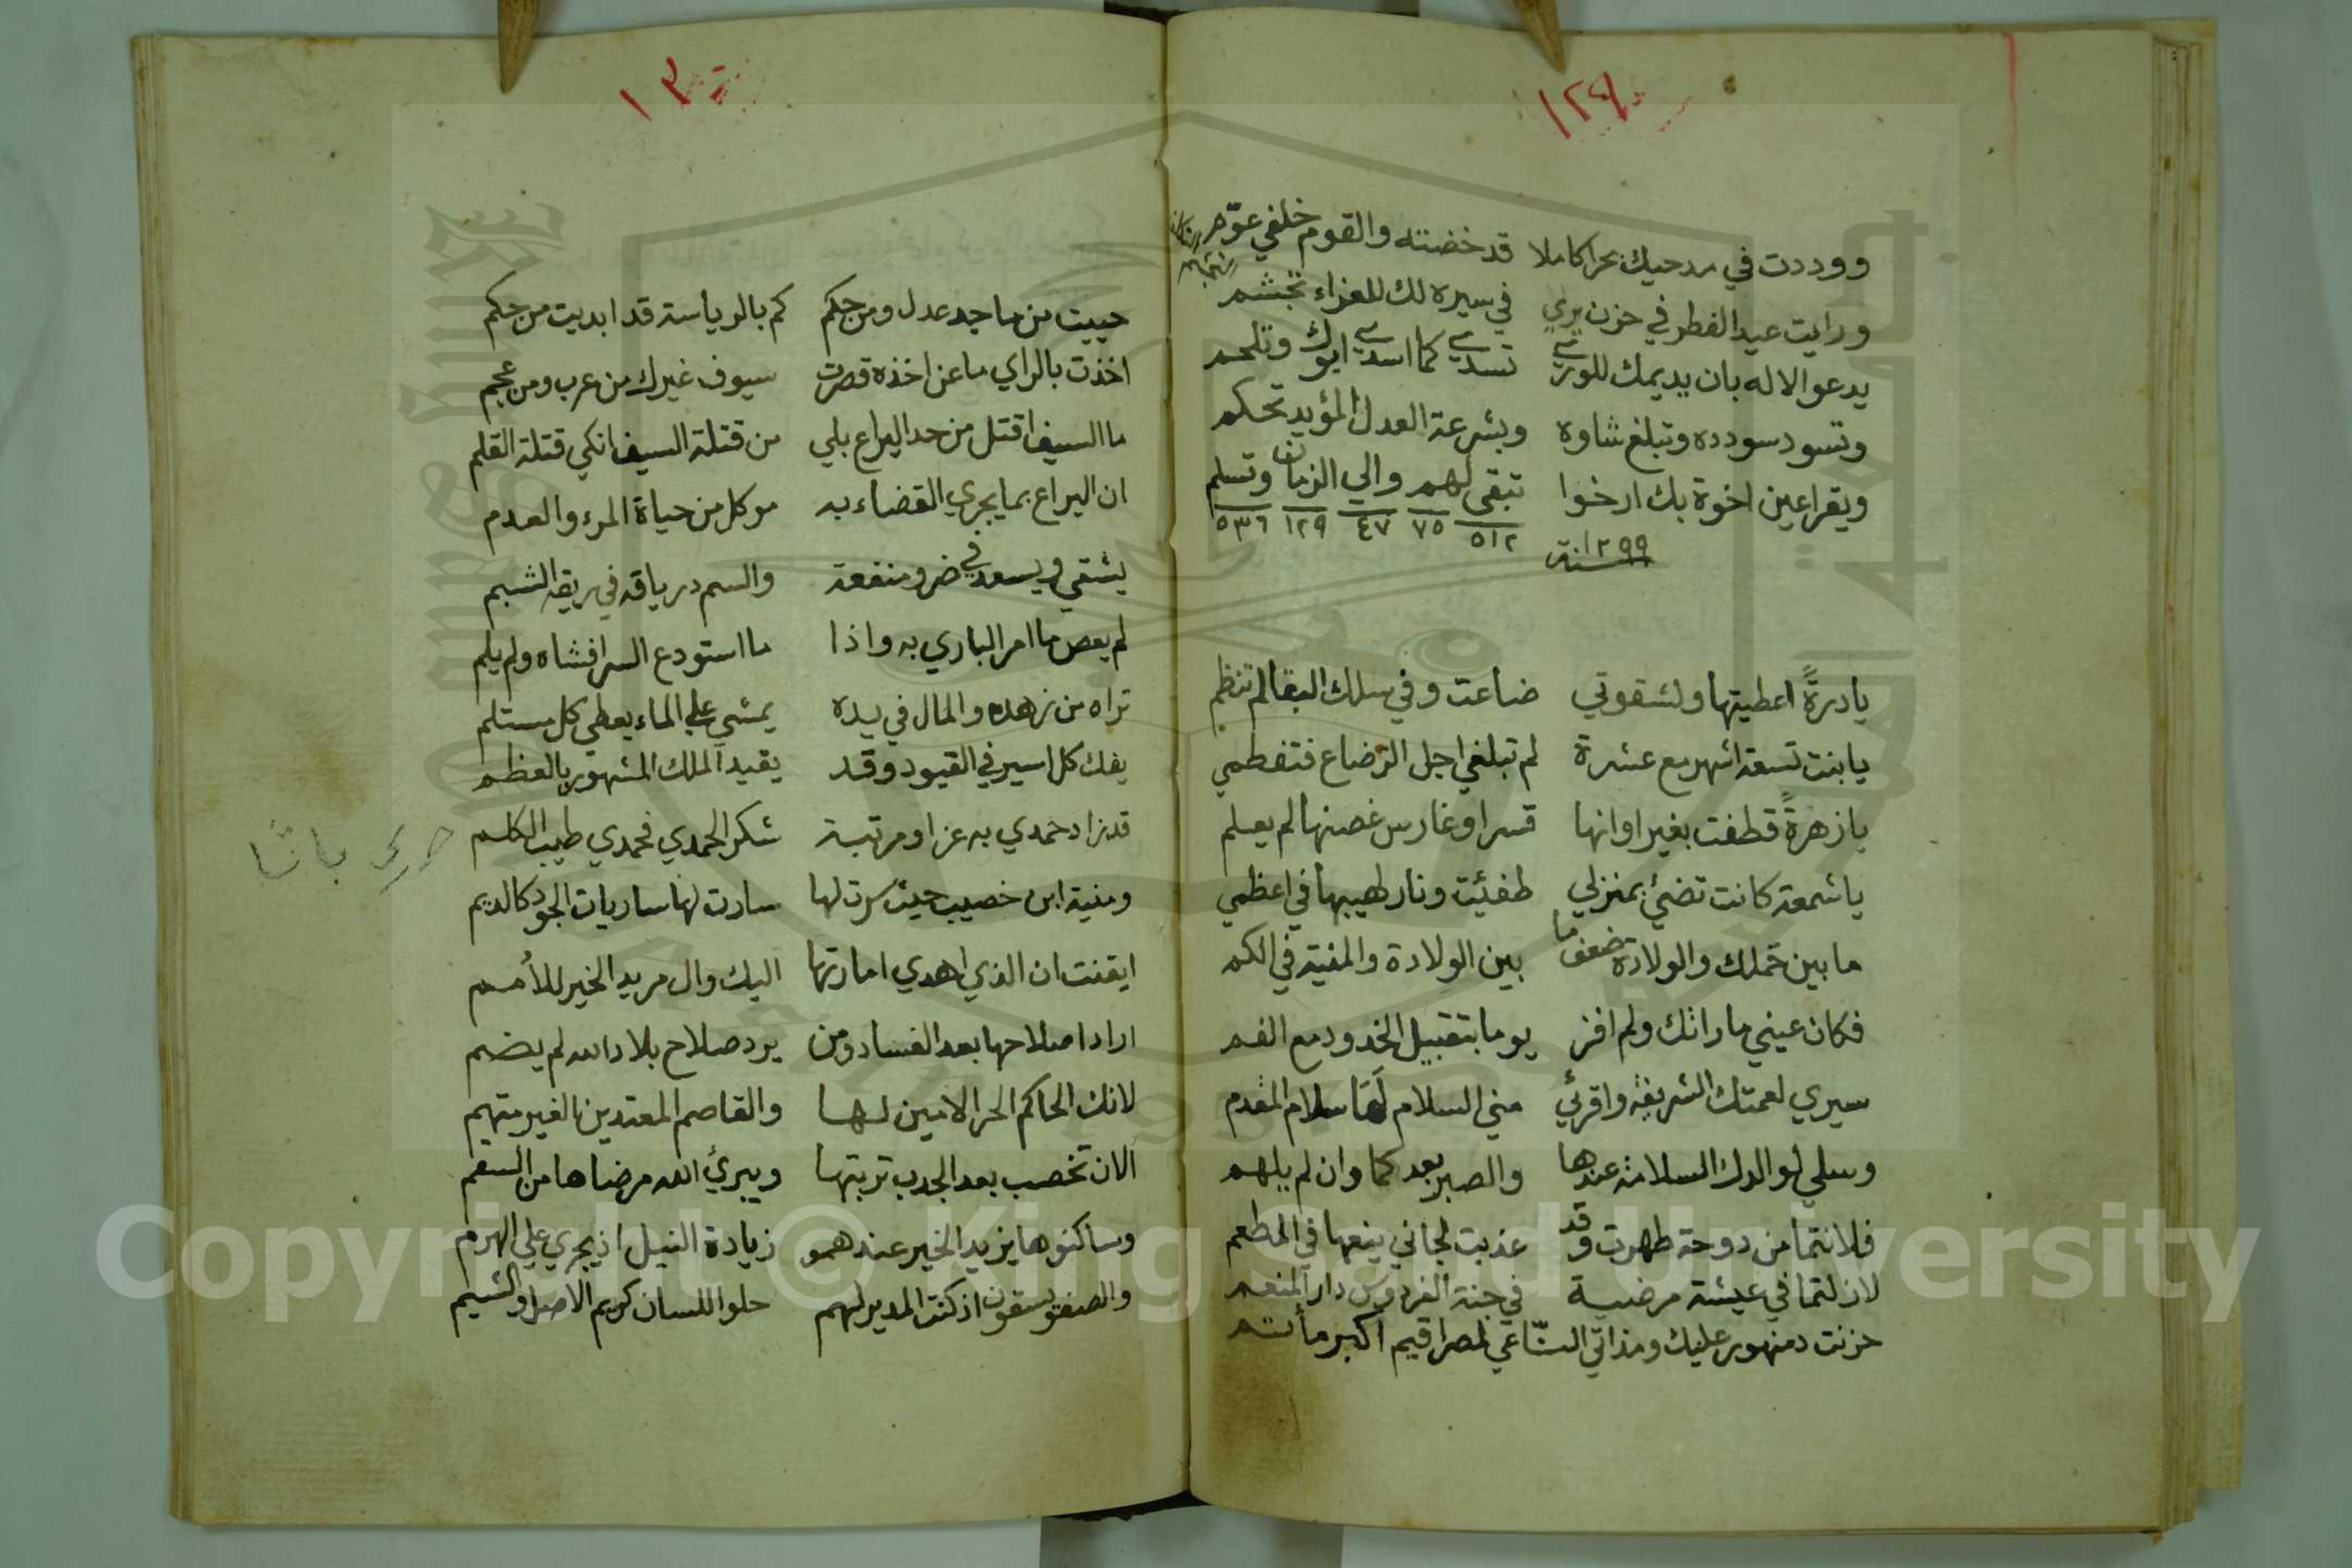 ١٢٩
ووددت في مدحيك بحرا كاملا قد خضته والقوم خلفي عوّم
ورايت عيد الفطر في حزن يري في سيره لك للعزاء تجشم
يدعو الاله بان يديمك للوري تسدي كما اسدي ابوك وتلحم
وتسود سودده وتبلغ شاوه وبشرعة العدل المؤيد تحكم
ويقر اعين اخوة بك ارخوا تبقى لهم والي الزمان وتسلم
٥١٢ ٧٥ ٤٧ ١٢٩ ٥٣٦
سنة ١٢٩٩
يا درةً اعطيتها ولشقوتي ضاعت وفي سلك البقا لم تنظم
يا بنت تسعة اشهر مع عشرة لم تبلغي اجل الرضاع فتفطمي
يا زهرةً قطفت بغير اوانها قسرا وغارس غصنها لم يعلم
يا شمعة كانت تضئ بمنزلي طفئت ونار لهيبها في اعظمي
ما بين حملك والولادة ضعف ما بين الولادة والمنية في الكم
فكان عيني ما راتك ولم افز يوما بتقبيل الخدود مع الفم
سيري لعمتك الشريفة واقرئي مني السلام لها سلام المقدم
وسلي لوالدك السلامة عندها والصبر بعدكما وان لم يلهم
فلانتما من دوحة طهرت وقد عذبت لجاني ينعها في المطعم
لازلتما في عيشة مرضية في جنة الفردوس دار المنعم
حزنت دمنهور عليك ومذ اتي الناعي لمصر اقيم اكبر مأتم
١٣٠
حييت من ماجد عدل ومن حكم كم بالرياسة قد ابديت من حكم
اخذت بالراي ما عن اخذه قصرت سيوف غيرك من عرب ومن عجم
ما السيف اقتل من حد اليراع بلي من قتلة السيف انكي قتلة القلم
ان اليراع بما يجري القضاء به موكل من حياة المرء والعدم
يشقي ويسعد في ضر ومنفعة والسم درياقه في ريقه الشبم
لم يعص ما امر الباري به واذا ما استودع السر افشاه ولم يلم
تراه من زهده والمال في يده يمشي علي الماء يعطي كل مستلم
يفك كل اسير في القيود وقد يقيد الملك المشهور بالعظم
قد زاد حمدي به عزا ومرتبة شكر الحمدي فحمدي طيب الكلم
ومنية ابن خصيب حيث سرت لها سارت لها ساريات الجود كالديم
ايقنت ان الذي اهدي امارتها اليك وال مريد الخير للأمم
اراد اصلاحها بعد الفساد ومن يرد صلاح بلاد الله لم يضم
لانك الحاكم الحر الامين لها والقاصم المعتدين الغير متهم
الان تخصب بعد الجدب تربتها ويبرئ الله مرضاها من السقم
وساكنوها يزيد الخير عندهمو زيادة النيل اذ يجري علي الهرم
والصفو يسقون اذ كنت المدير لهم حلو اللسان كريم الاصل والشيم
باشا